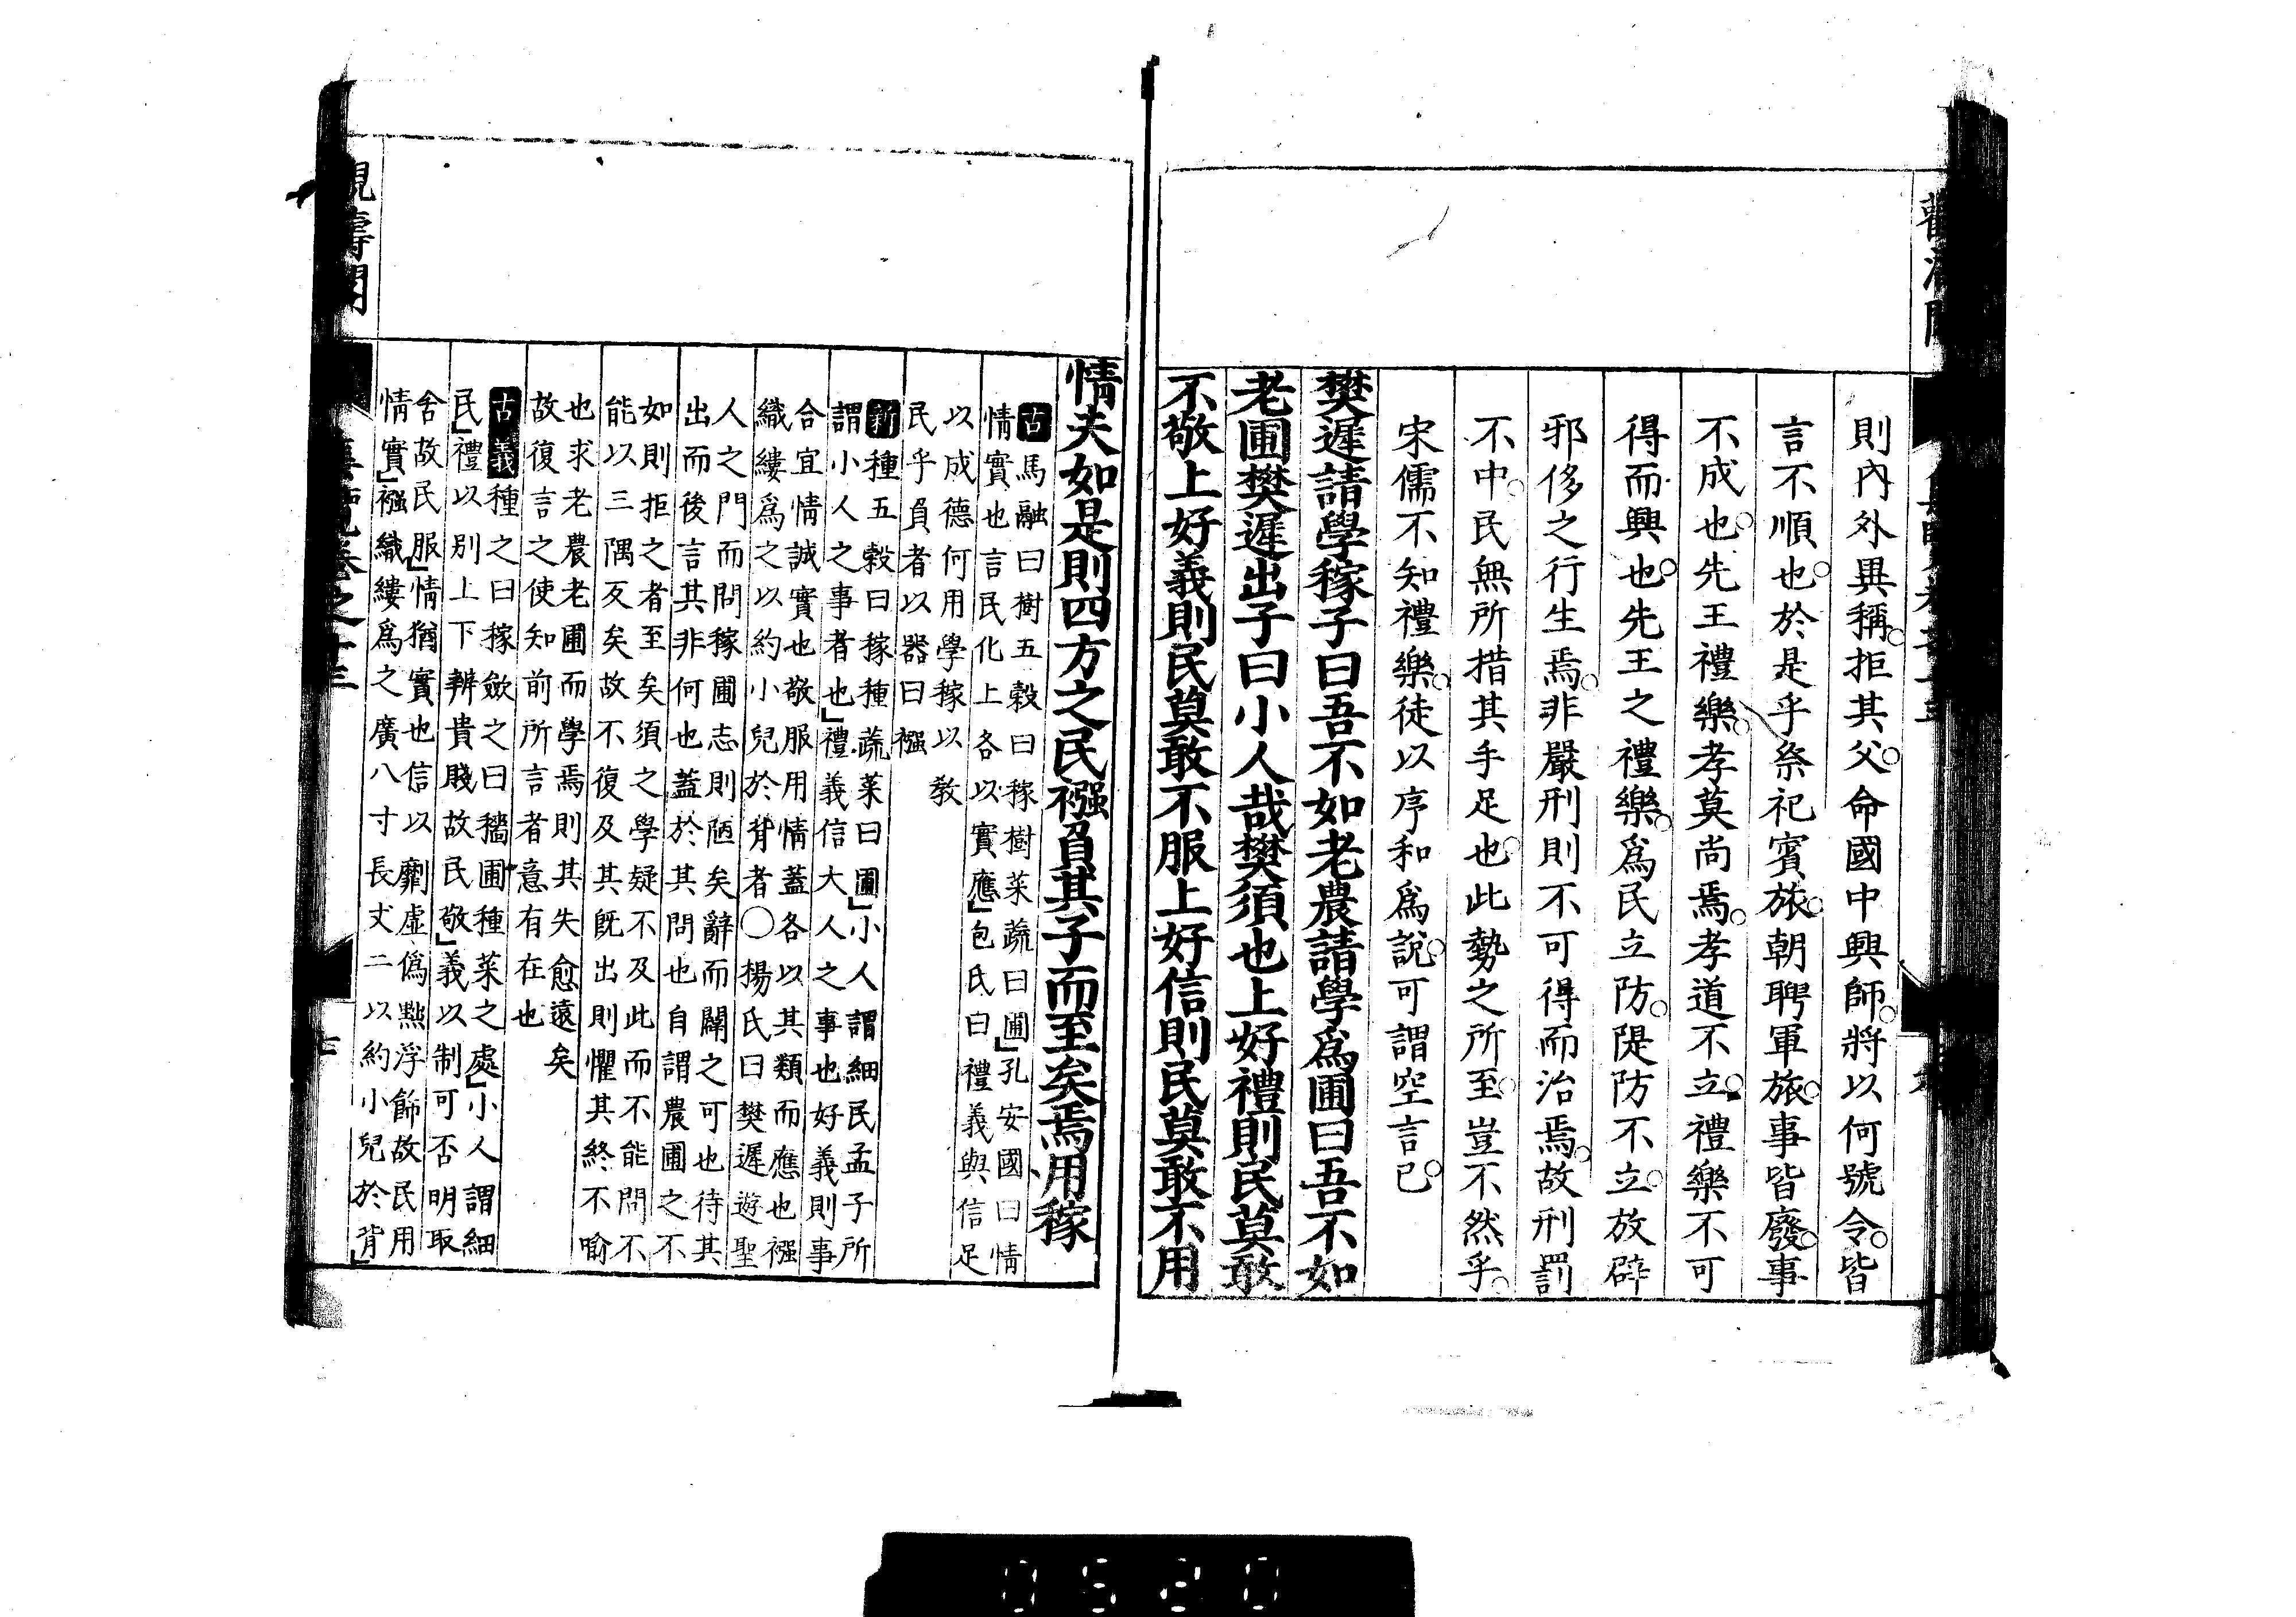 則內外異稱拒其父命國中興師將以何號令皆
言不順也於是乎祭祀賓旅朝聘軍旅事皆廢事
不成也先王禮樂孝莫尚焉孝道不立禮樂不可
得而興也先王之禮樂爲民立防隄防不立放辟
邪侈之行生焉非嚴刑則不可得而治焉故刑罰
不中民無所措其手足也此勢之所至豈不然乎
宋儒不知禮樂徒以序和爲說可謂空言已
樊遲請學稼子曰吾不如老農請學爲圃曰吾不如
老圃樊遲出子曰小人哉樊須也上好禮則民莫敢
不敬上好義則民莫敢不服上好信則民莫敢不用
情夫如是則四方之民襁負其子而至矣焉用稼
古馬融曰樹五穀曰稼樹菜蔬曰圃」孔安國曰情
情實也言民化上各以實應」包氏曰禮義與信足
以成德何用學稼以教
民乎負者以器曰襁
新種五穀曰稼種蔬菜曰圃」小人謂細民孟子所
謂小人之事者也」禮義信大人之事也好義則事
合宜情誠實也敬服用情蓋各以其類而應也襁
織縷爲之以約小兒於背者○揚氏曰樊遲遊聖
人之門而問稼圃志則陋矣辭而闢之可也待其
出而後言其非何也蓋於其問也自謂農圃之不
如則拒之者至矣須之學疑不及此而不能問不
能以三隅反矣故不復及其既出則懼其終不喻
也求老農老圃而學焉則其失愈遠矣
故復言之使知前所言者意有在也
古義種之曰稼斂之曰穡圃種菜之處」小人謂細
民」禮以別上下辨貴賤故民敬」義以制可否明取
舍故民服」情猶實也信以劘虛僞黜浮飾故民用
情實」襁織縷爲之廣八寸長丈二以約小兒於背」